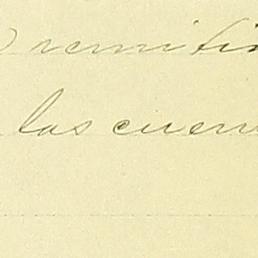 remitir
las cuen